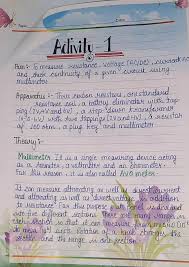 Date
Activity - 1
Aim :- To measure resistance, voltage (AC/DC), current
and check continuity of a given circuit using
multimeter.
Apparatus :- Three carbon resistors, one standard
resistance coil, a battery eliminator with tapp-
ing (2V, 4V and 6V), a step down transformer
(6-0-6V) with two tapping (2V and 4V), a resistor
of 100 ohm, a plug key and multimeter
Theory :-
Multimeter It is a single measuring device acting
as a Ammeter, a voltmeter and an Ohmmeter.
For this reason, it is also called AVO meter
It can measure alternating as well as direct current
and alternating as well as direct voltage in addition
to resistance. For this purpose its panel is divided
into five different sections. There are many ranges in
each section
to
section and the range in one section.